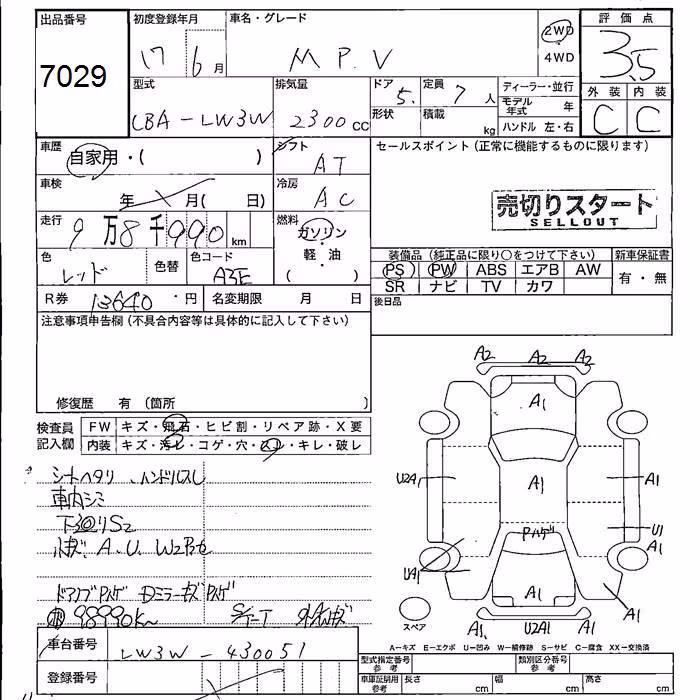 出品番号 初度登録年月 車名・グレード 2WD 評価点
7029 17 6月 MPV 4WD 3.5
型式 排気量 ドア 定員 ディーラー・並行 外装 内装
CBA-LW3W 2300cc 5. 7人 モデル年式 年 C C
形状 積載 kg ハンドル 左・右
車歴 自家用・( ) シフト AT セールスポイント(正常に機能するものに限ります)
車検 年 月( 日) 冷房 AC
売切りスタート
SELLOUT
走行 9万8千990km 燃料 ガソリン
軽・油
( )
色 レッド 色替 色コード A3E
装備品(純正品に限り○をつけて下さい) 新車保証書
PS PW ABS エアB AW 有・無
SR ナビ TV カワ
R券 13640円 名変期限 月 日 後日品
注意事項申告欄(不具合内容等は具体的に記入して下さい)
修復歴 有(箇所 )
検査員記入欄 FW キズ・飛石・ヒビ割・リペア跡・X要
内装 キズ・汚レ・コゲ・穴・スレ・キレ・破レ
シートヘタリ、ハンドルスレ
車内シミ
下廻りS2
小キズ. A.U. W2
ドアノブPハゲ DミラーキズPハゲ
98990km S/T-T
A2 A2 A2
A1
U2A1 A1 A1
Pハゲ U1
A1
UA1 A1 A1
A1. U2A1 A1
スペア
A-キズ E-エクボ U-凹み W-補修跡 S-サビ C-腐食 XX-交換済
車台番号 LW3W-430051 型式指定番号 参考 類別区分番号 参考
登録番号 車庫証明用 参考 長さ cm 幅 cm 高さ cm